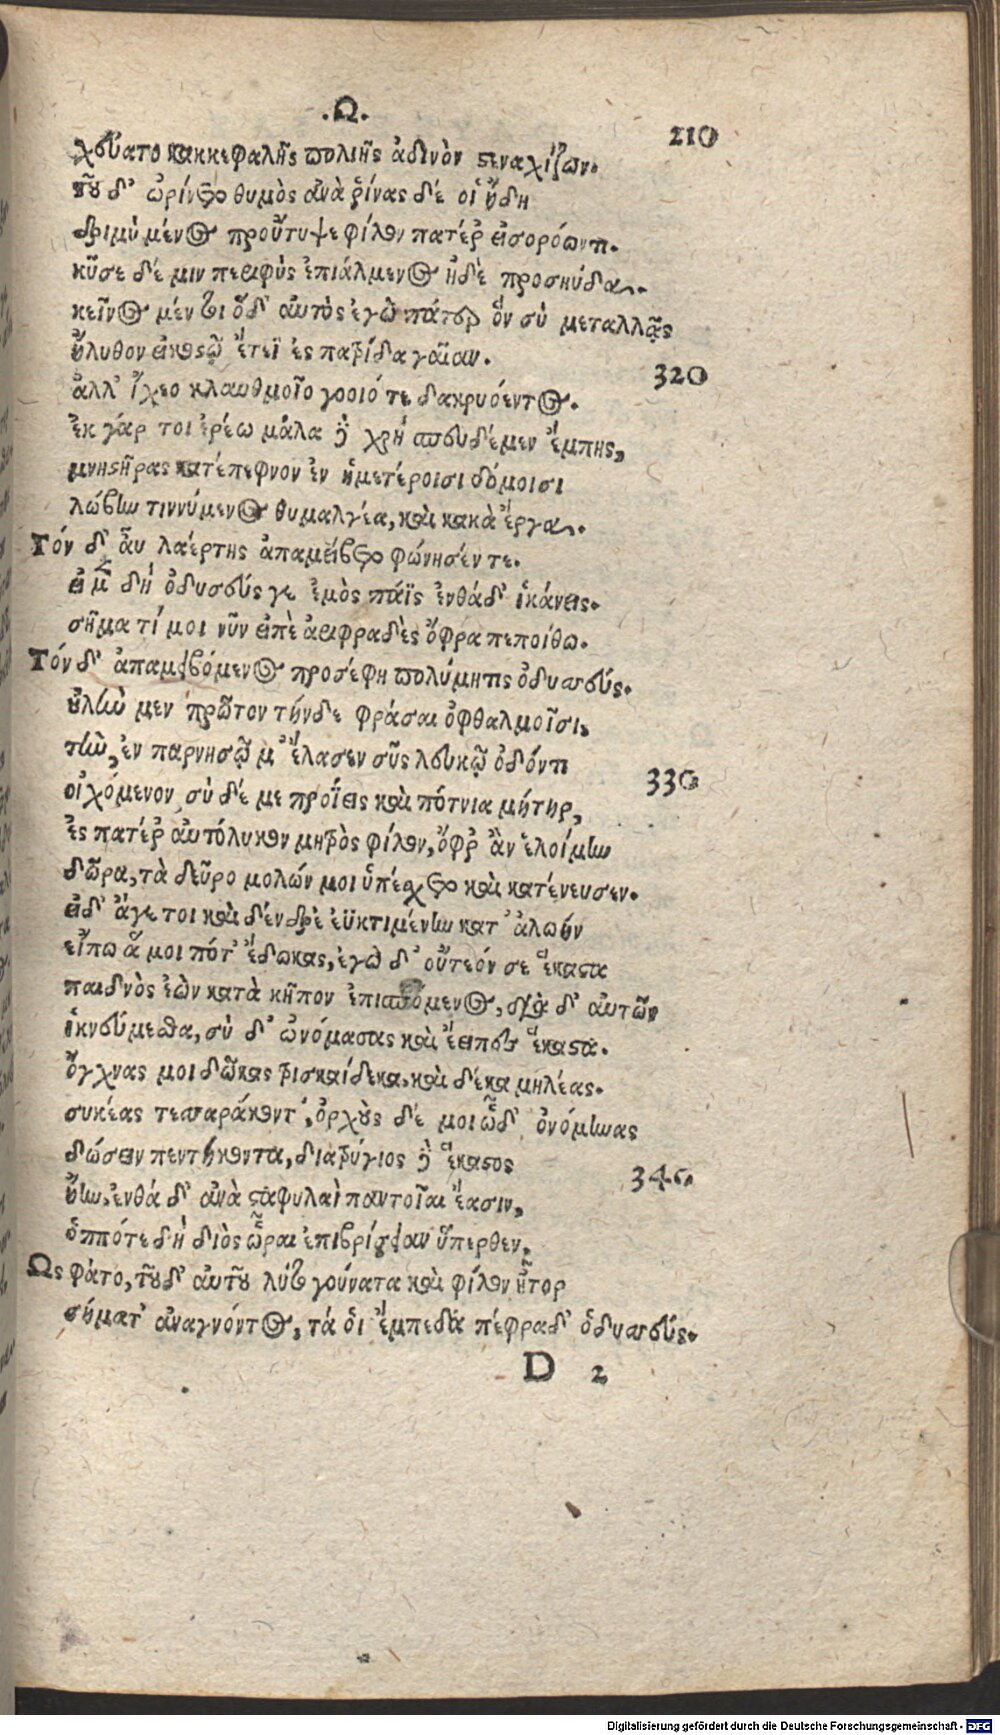 .Ω.
210
χεύατο κακκεφαλῆς πολιῆς ἁδινὸν στεναχίζων.
τοῦ δ' ὠρίνετο θυμὸς ἀνὰ ῥῖνας δέ οἱ ἤδη
δριμὺ μένος προὔτυψε φίλον πατέρ' εἰσορόωντι.
κῦσε δέ μιν περιφὺς ἐπιάλμενος ἠδὲ προσηύδα.
κεῖνος μέν τοι ὅδ' αὐτὸς ἐγὼ πάτερ ὃν σὺ μεταλλᾷς
ἤλυθον εἰκοστῷ ἔτεϊ ἐς πατρίδα γαῖαν.
320
ἀλλ' ἴχεο κλαυθμοῖο γοοιό τε δακρυόεντος.
ἐκ γάρ τοι ἐρέω μάλα δὲ χρὴ σπευδέμεν ἔμπης,
μνηστῆρας κατέπεφνον ἐν ἡμετέροισι δόμοισι
λώβην τιννύμενος θυμαλγέα, καὶ κακὰ ἔργα.
Τόν δ' αὖ λαέρτης ἀπαμείβετο φώνησέν τε.
εἰ μ δὴ ὀδυσεύς γε ἐμὸς πάϊς ἐνθάδ' ἱκάνεις.
σῆμα τί μοι νῦν εἰπὲ ἀριφραδὲς ὄφρα πεποίθω.
Τόν δ' ἀπαμειβόμενος προσέφη πολύμητις ὀδυσσεύς.
οὐλὴν μεν πρῶτον τήνδε φράσαι ὀφθαλμοῖσι,
τὴν, ἐν παρνησῷ μ' ἔλασεν σῦς λευκῷ ὀδόντι
330
οἰχόμενον σὺ δέ με προΐεις καὶ πότνια μήτηρ,
ἐς πατέρ' αὐτόλυκον μητρὸς φίλον, ὄφρ' ἂν ἑλοίμην
δῶρα, τὰ δεῦρο μολών μοι ὑπέσχετο καὶ κατένευσεν.
εἰ δ' ἄγε τοι καὶ δένδρε' ἐϋκτιμένην κατ' ἀλωὴν
εἴπω ἅ μοι πότ' ἔδωκας, ἐγὼ δ' οὔτεόν σε ἕκαστα
παιδνὸς ἐὼν κατὰ κῆπον ἐπισπόμενος, διὰ δ' αὐτῶν
ἱκνεύμεθα, σὺ δ' ὠνόμασας καὶ ἔειπες ἕκαστα.
ὄγχνας μοι δῶκας τρισκαίδεκα, καὶ δέκα μηλέας.
συκέας τεσσαράκοντ', ὄρχους δέ μοι ὧδ' ὀνόμηνας
δώσειν πεντήκοντα, διατρύγιος δὲ ἕκαστος
340
ἤην, ἐνθά δ' ἀνὰ σταφυλαὶ παντοῖαι ἔασιν,
ὁππότε δὴ διὸς ὧραι ἐπιβρίσειαν ὕπερθεν.
Ως φάτο, τοῦ δ' αὐτοῦ λύτο γούνατα καὶ φίλον ἦτορ
σήματ' ἀναγνόντος, τά ὁι ἔμπεδα πέφραδ' ὀδυσσεύς.
D 2
Digitalisierung gefördert durch die Deutsche Forschungsgemeinschaft - DFG